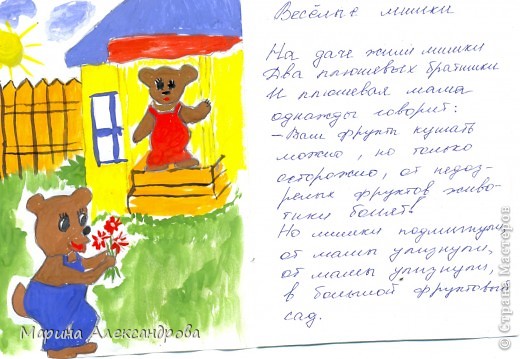 Весёлые мишки
На даче жили мишки
Два плюшевых братишки
И плюшевая мама
однажды говорит:
- Вам фрукты кушать
можно, но только
осторожно, от недоз-
релых фруктов живо-
тики болят!
Но мишки подмигнули
от мамы улизнули,
от мамы улизнули,
в большой фруктовый
сад.
Марина Александрова
© Страна Мастеров